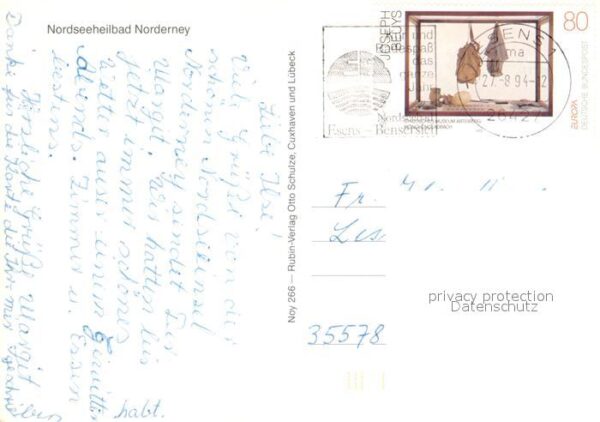 Nordseeheilbad Norderney
Liebe Ilse!
Viele Grüße von der
schönen Nordseeinsel
Norderney sendet Dir
Margit. Wir hatten bis
jetzt immer schönes
Wetter ausser einem Gewitter
abends. Zimmer u. Essen
bestens.
Herzliche Grüße Margit
Danke für die Karte die Du mir geschrieben
habt.
Noy 266 — Rubin-Verlag Otto Schulze, Cuxhaven und Lübeck
JOSEPH
BEUYS
80
EUROPA
DEUTSCHE BUNDESPOST
ESENS 1
27.-8.94-12
26427
und
spaß
das
ganze
Jahr
Esens - Bensersiel
Fr.
35578
privacy protection
Datenschutz